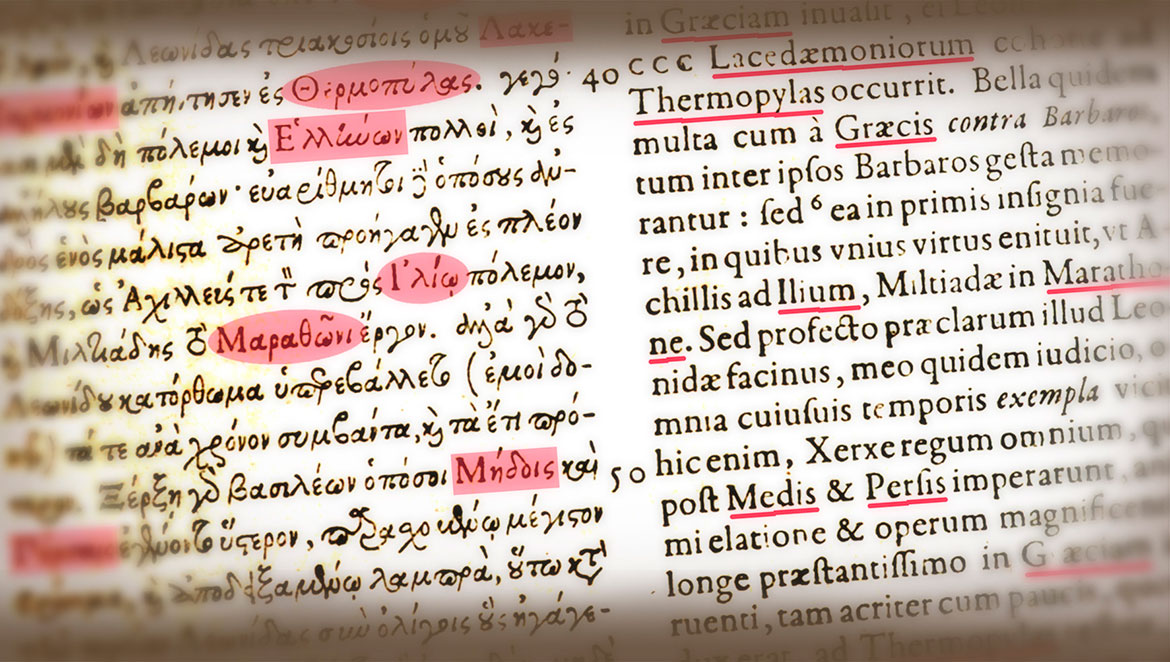 Λεωνίδας τριακοσίοις ὁμοῦ Λακε-
ἀπήντησεν ἐς Θερμοπύλας. γεγό-
δὴ πόλεμοι καὶ Ἑλλήνων πολλοὶ, καὶ ἐς
βαρβάρων· εὐαρίθμητοι δὲ ὁπόσους ἀν-
ἑνὸς μάλιστα ἀρετὴ προήγαγεν ἐς πλέον
δόξης, ὡς Ἀχιλλεύς τε πρὸς Ἰλίῳ πόλεμον,
Μιλτιάδης τὸ Μαραθῶνι ἔργον. ἀλλὰ γὰρ τὸ
Λεωνίδου κατόρθωμα ὑπερεβάλλετο (ἐμοὶ δο-
τά τε ἀνὰ χρόνον συμβάντα, καὶ τὰ ἔτι πρό-
Ξέρξῃ γὰρ βασιλέων ὁπόσοι Μήδοις καὶ
ἐγένοντο ὕστερον, παρασχομένῳ μέγιστον
ἀποδειξαμένῳ λαμπρὰ, οὕτω
Λεωνίδας σὺν ὀλίγοις οὓς ἠγάγε-
40
50
in Græciam inuasit, ei
CCC Lacedæmoniorum
Thermopylas occurrit. Bella quidem
multa cum à Græcis contra Barbaros,
tum inter ipſos Barbaros geſta memo-
rantur : ſed 6 ea in primis inſignia fue-
re, in quibus vnius virtus enituit, vt A-
chillis ad Ilium, Miltiadæ in Maratho-
ne. Sed profecto præclarum illud Leo-
nidæ facinus, meo quidem iudicio, o-
mnia cuiuſuis temporis exempla vicit
hic enim, Xerxe regum omnium, qui
poſt Medis & Perſis imperarunt,
mi elatione & operum magnifice
longe præſtantiſſimo in Græciam
ruenti, tam acriter cum paucis,
ad Thermopylas